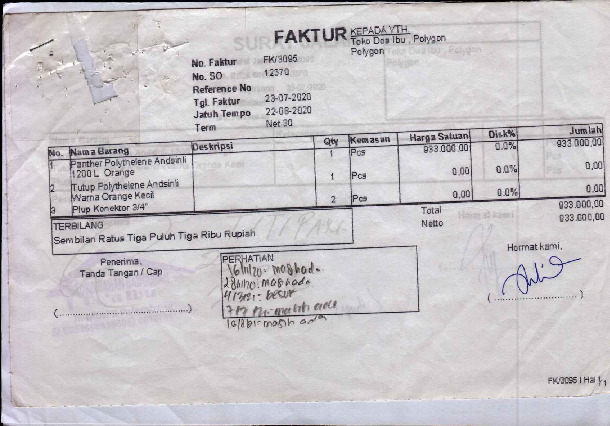 FAKTUR
KEPADA YTH.
Toko Doa Ibu , Polygon
Polygon
No. Faktur FK/3095
No. SO 12370
Reference No
Tgl. Faktur 23-07-2020
Jatuh Tempo 22-08-2020
Term Net 30
No. Nama Barang Deskripsi Qty Kemasan Harga Satuan Disk% Jumlah
1 Panther Polythelene Andsinli 1 Pcs 933.000,00 0.0% 933.000,00
1200 L Orange
2 Tutup Polythelene Andsinli 1 Pcs 0,00 0.0% 0,00
Warna Orange Kecil
3 Plup Konektor 3/4" 2 Pcs 0,00 0.0% 0,00
Total 933.000,00
Netto 933.000,00
TERBILANG
Sembilan Ratus Tiga Puluh Tiga Ribu Rupiah
Penerima,
Tanda Tangan / Cap
(..............................)
PERHATIAN
Hormat kami,
(..............................)
masih ada
FK/3095 | Hal 1/1